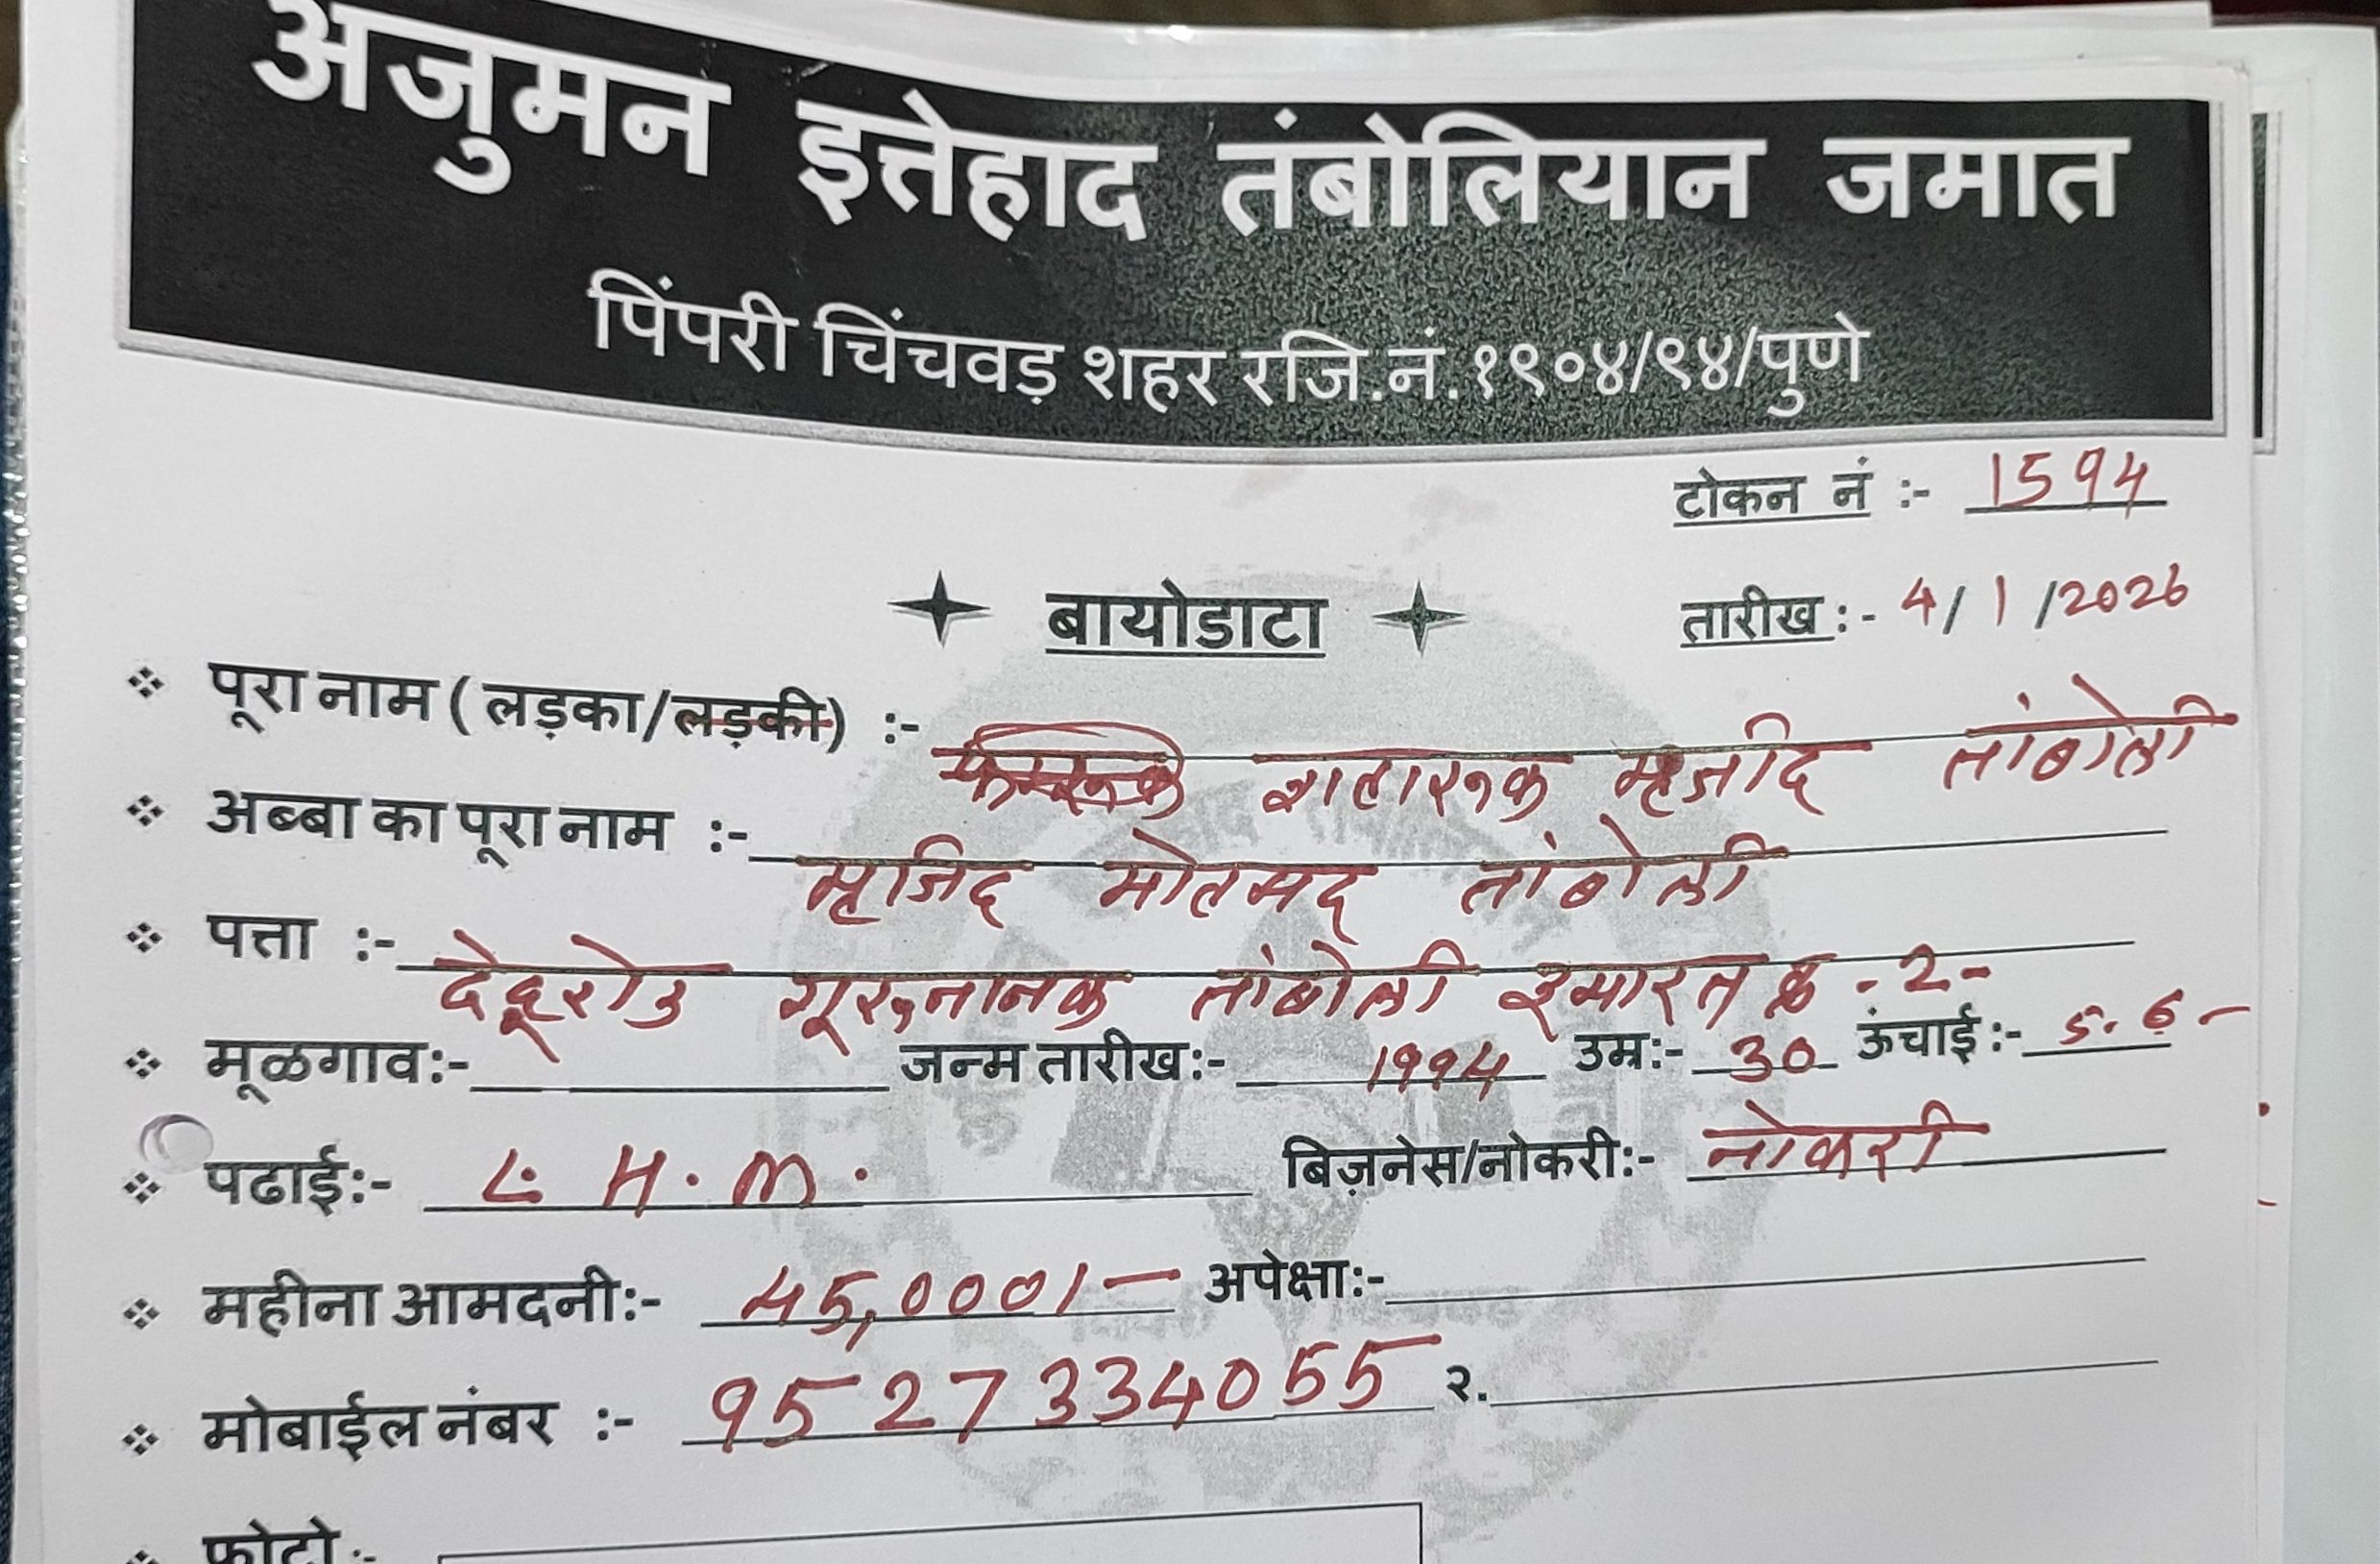 अजुमन इत्तेहाद तंबोलियान जमात
पिंपरी चिंचवड़ शहर रजि.नं.१९०४/९४/पुणे
टोकन नं :- 1594
बायोडाटा
तारीख :- 4/1/2026
पूरा नाम ( लड़का/लड़की) :- शाहारूक मजीद तांबोली
अब्बा का पूरा नाम :- मजिद मोहमद तांबोली
पत्ता :- देहूरोड गूरूनानक तांबोली इमारत - 2-
मूळगाव:- जन्म तारीख:- 1994 उम्र:- 30 ऊंचाई:- 5.6-
पढाई:- L. H. M. बिज़नेस/नोकरी:- नोकरी
महीना आमदनी:- 45,000/- अपेक्षा:-
मोबाईल नंबर :- 9527334055 २.
फोटो :-